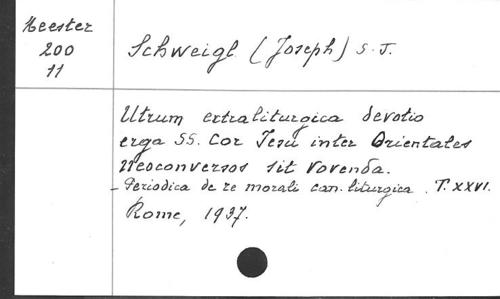 Meester
200
11
Schweigl (Joseph) S. J.
Utrum extraliturgica devotio
erga SS. Cor Jesu inter Orientales
Neoconversos sit vovenda.
- Periodica de re morali can. liturgica. T. XXVI.
Rome, 1937.